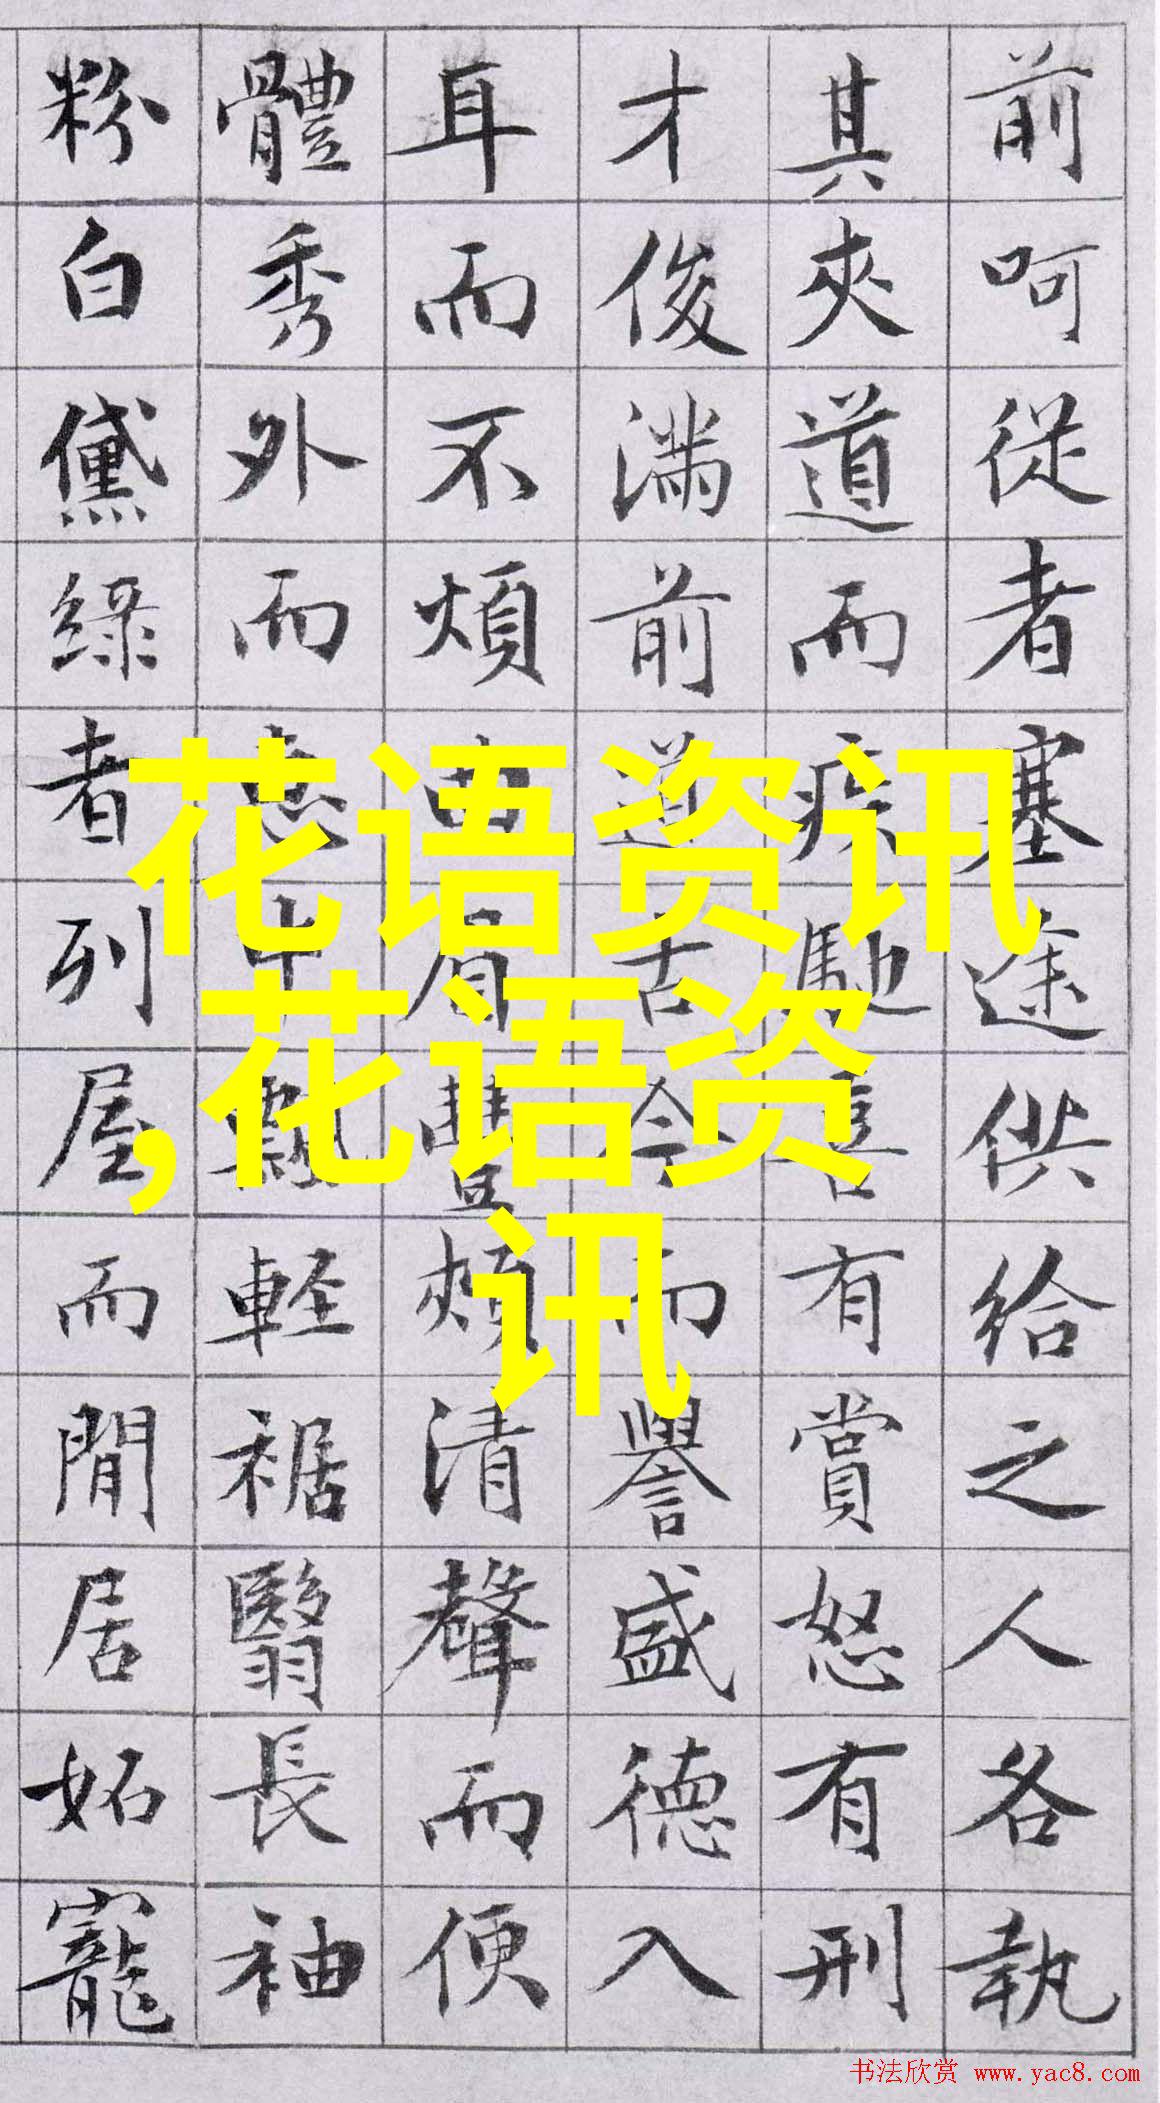 前呵從者塞途供給之人各執
其夾道而疾馳喜有賞怒有刑
才俊滿前道古今而譽盛德入
耳而不煩曲眉豐頰清聲而便
體秀外而惠中飄輕裾翳長袖
粉白黛綠者列屋而閒居妬寵
花语资讯
,花语资
讯
书法欣赏 www.yac8.com